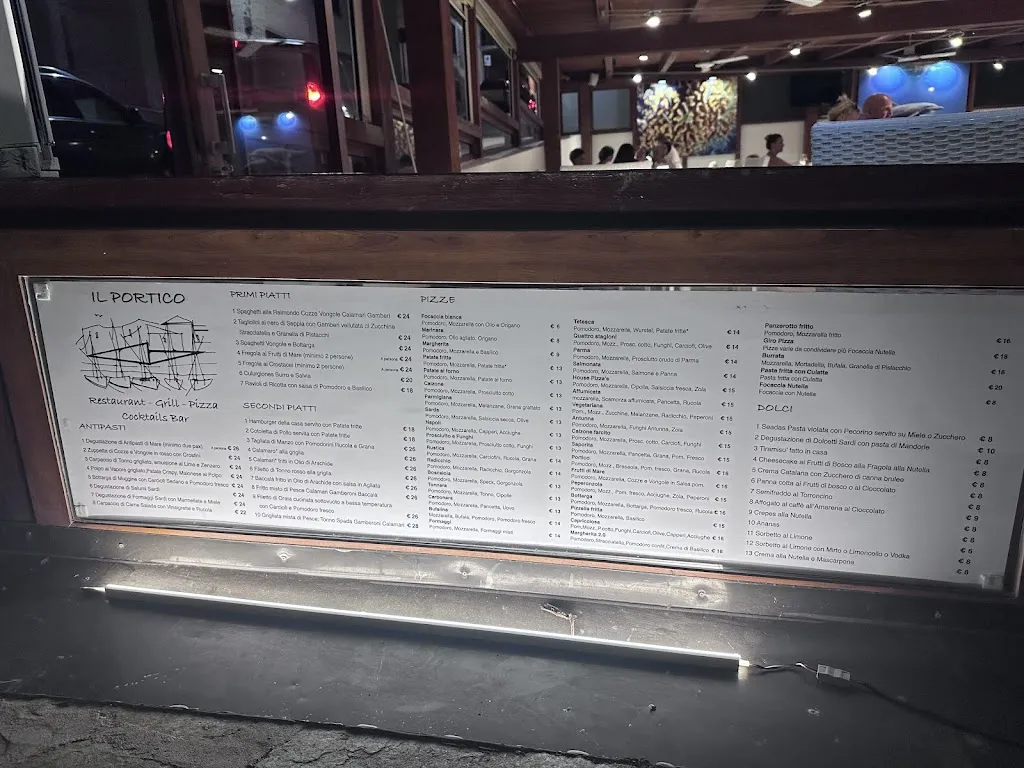 IL PORTICO
Restaurant - Grill - Pizza
Cocktails Bar
ANTIPASTI
1 Degustazione di Antipasti di Mare (minimo due pax)
2 Zuppetta di Cozze e Vongole in rosso con Crostini a persona € 26
3 Carpaccio di Tonno grigliato, emulsione al Lime e Zenzero € 24
4 Polpo al Vapore grigliato, Patate Crispy, Maionese al Polpo € 24
5 Bottarga di Muggine con Carciofi Sedano e Pomodoro fresco € 24
6 Degustazione di Salumi Sardi € 24
7 Degustazione di Formaggi Sardi con Marmellata e Miele € 24
8 Carpaccio di Carne Salada con Vinaigrette e Rucola € 22
PRIMI PIATTI
1 Spaghetti alla Raimondo Cozze Vongole Calamari Gamberi € 24
2 Tagliolini al nero di Seppia con Gamberi vellutata di Zucchine
Stracciatella e Granella di Pistacchi € 24
3 Spaghetti Vongole e Bottarga € 24
4 Fregola ai Frutti di Mare (minimo 2 persone) a persona € 24
5 Fregola ai Crostacei (minimo 2 persone) a persona € 24
6 Culurgiones Burro e Salvia € 20
7 Ravioli di Ricotta con salsa di Pomodoro e Basilico € 18
SECONDI PIATTI
1 Hamburger della casa servito con Patate fritte € 18
2 Cotoletta di Pollo servita con Patate fritte € 18
3 Tagliata di Manzo con Pomodorini Rucola e Grana € 26
4 Calamaro* alla griglia € 26
5 Calamaro* fritto in Olio di Arachide € 26
6 Filetto di Tonno rosso alla griglia € 26
7 Baccalà fritto in Olio di Arachide con salsa in Agliata € 26
8 Fritto misto di Pesce Calamari Gamberoni Baccalà € 26
9 Filetto di Orata cucinata sottovuoto a bassa temperatura
con Cardofi e Pomodoro fresco € 26
10 Grigliata mista di Pesce: Tonno Spada Gamberoni Calamari € 28
PIZZE
Focaccia bianca
Pomodoro, Mozzarella con Olio e Origano € 6
Marinara
Pomodoro, Olio agliato, Origano € 8
Margherita
Pomodoro, Mozzarella e Basilico € 9
Patate fritte
Pomodoro, Mozzarella, Patate fritte* € 13
Patate al forno
Pomodoro, Mozzarella, Patate al forno € 13
Calzone
Pomodoro, Mozzarella, Prosciutto cotto € 13
Parmigiana
Pomodoro, Mozzarella, Melanzane, Grana grattato € 13
Sarda
Pomodoro, Mozzarella, Salsiccia secca, Olive € 13
Napoli
Pomodoro, Mozzarella, Capperi, Acciughe € 13
Prosciutto e Funghi
Pomodoro, Mozzarella, Prosciutto cotto, Funghi € 13
Rustica
Pomodoro, Mozzarella, Carciofini, Rucola, Grana € 14
Radicchio
Pomodoro, Mozzarella, Radicchio, Gorgonzola € 14
Boscaiola
Pomodoro, Mozzarella, Speck, Gorgonzola € 14
Tonnara
Pomodoro, Mozzarella, Tonno, Cipolle € 14
Carbonara
Pomodoro, Mozzarella, Pancetta, Uovo € 14
Bufalina
Pomodoro, Mozzarella, Bufala, Pomodoro, Pomodoro fresco € 14
Formaggi
Pomodoro, Mozzarella, Formaggi misti € 14
Tedesca
Pomodoro, Mozzarella, Wurstel, Patate fritte* € 14
Quattro stagioni
Pomodoro, Mozz., Prosc. cotto, Funghi, Carciofi, Olive € 14
Parma
Pomodoro, Mozzarella, Prosciutto crudo di Parma € 14
Salmonata
Pomodoro, Mozzarella, Salmone e Panna € 14
House Pizze's
Pomodoro, Mozzarella, Cipolla, Salsiccia fresca, Zola € 15
Affumicata
Mozzarella, Scamorza affumicata, Pancetta, Rucola € 15
Vegetariana
Pom., Mozz., Zucchine, Melanzane, Radicchio, Peperoni € 15
Antunna
Pomodoro, Mozzarella, Funghi Antunna, Zola € 15
Calzone farcito
Pomodoro, Mozzarella, Prosc. cotto, Carciofi, Funghi € 15
Saporita
Pomodoro, Mozzarella, Pancetta, Grana, Pom. Fresco € 15
Portico
Pomodoro, Mozz., Bresaola, Pom. fresco, Grana, Rucola € 16
Frutti di Mare
Pomodoro, Mozzarella, Cozze e Vongole in Salsa pom. € 16
Peperonzola
Pomodoro, Mozz., Pom. fresco, Acciughe, Zola, Peperoni € 15
Bottarga
Pomodoro, Mozzarella, Bottarga, Pomodoro fresco, Rucola € 16
Pizzella fritta
Pomodoro, Mozzarella, Basilico € 15
Capricciosa
Pom, Mozz, P.cotto, Funghi, Carciofi, Olive, Capperi, Acciughe € 16
Margherita 2.0
Pomodoro, Stracciatella, Pomodoro confit, Crema di Basilico € 16
Panzerotto fritto
Pomodoro, Mozzarella fritto € 16
Giro Pizza
Pizze varie da condividere più Focaccia Nutella € 18
Burrata
Mozzarella, Mortadella, Bufala, Granella di Pistacchio € 16
Pasta fritta con Culatta
Pasta fritta con Culatta € 20
Focaccia Nutella
Focaccia con Nutella € 8
DOLCI
1 Seadas Pasta violata con Pecorino servito su Miele o Zucchero € 8
2 Degustazione di Dolcetti Sardi con pasta di Mandorle € 10
3 Tiramisu' fatto in casa € 8
4 Cheesecake ai Frutti di Bosco alla Fragola alla Nutella € 8
5 Crema Catalana con Zucchero di canna brulee € 8
6 Panna cotta ai Frutti di bosco o al Cioccolato € 8
7 Semifreddo al Torroncino € 8
8 Affogato al caffè all'Amarena al Cioccolato € 8
9 Crepes alla Nutella € 9
10 Ananas € 8
11 Sorbetto al Limone € 8
12 Sorbetto al Limone con Mirto o Limoncello o Vodka € 8
13 Crema alla Nutella e Mascarpone € 8